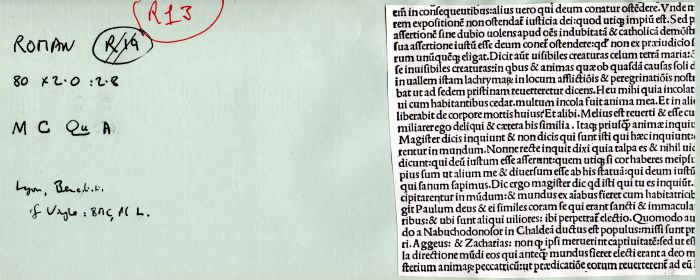 R13
ROMAN R/19
80 x 2.0 : 2.8
M C Qu A
Lyon,
eni in consequutibus: alius vero qui deum conatur ostēdere. Vnde n
rem expositionē non ostendaꝶ iusticia dei: quod utiqꝫ impiū est. Sed p
assertionē sine dubio uolens apud oēs indubitatā & catholicā demōst
sua assertione iustū esse deum conet̄ ostendere: qd̄ non ex præiudicio s
rum unūquēqꝫ eligat. Dicit aūt uisibiles creaturas celum terrā maria:
se inuisibiles creaturas: in qbus & animas quæ ob quasdā causas soli d
in uallem istam lachrymaꝶ in locum afflictiōis & peregrinatiōis nostr
bat ut ad sedem pristinam reuerteretur dicens. Heu mihi quia incolat
ui cum habitantibus cedar. multum incola fuit anima mea. Et in alio
liberabit de corpore mortis huius? Et alibi. Melius est reuerti & esse cu
miliarer ego deliqui & cætera his similia. Itaqꝫ priusqꝫ animæ inqui
Magister dicis inquiunt & non dicis qui sunt isti qui hæc inquiunt:
rentur in mundum. Nonne recte inquit dixi quia talpa es & nihil uid
dicunt: qui deū iustum esse asserunt: quem utiqꝫ si cor haberes meipsu
pius sum ut alium me & diuersum esse ab his statuā: qui deum iustū
qui sanum sapimus. Dic ergo magister dic qd isti qui tu es inquiūt.
cipitarentur in mūdum: & mundus ex aīabus fieret cum habitatio
git Paulum deus & ei similes coram se qui erant sancti & immacula
ribus: & ubi sunt aliqui uiliores: ibi perpetrat̄ electio. Quomodo au
do a Nabuchodonosor in Chaldeā ductus est populus: missi sunt pr
ri. Aggeus: & Zacharias: non qꝫ ipsi meruerint captiuitatē: sed ut es
la directione mūdi eos qui anteqꝫ mundus fieret electi erant a deo n
sterium animaꝶ peccatriciū: ut prædicatiōe eorum reuerterent̄ ad eū